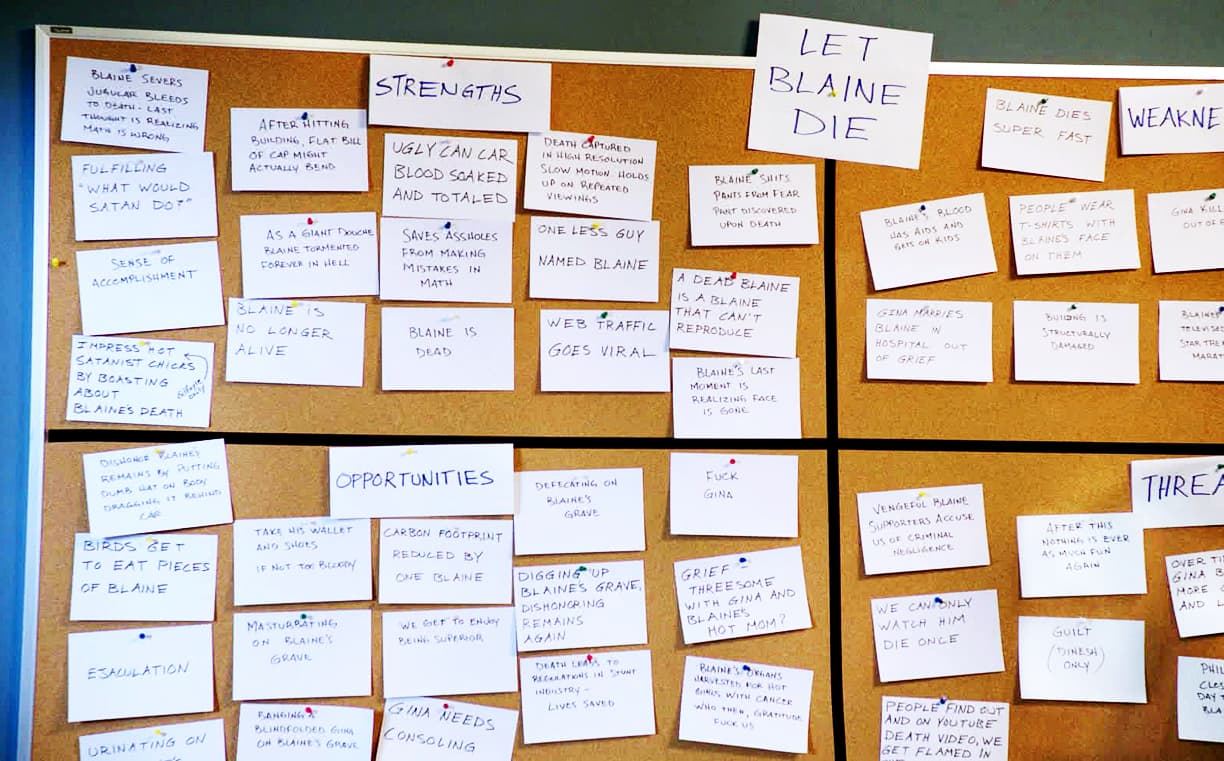 LET
BLAINE
DIE
STRENGTHS
BLAINE SEVERS
JUGULAR BLEEDS
TO DEATH - LAST
THOUGHT IS REALIZING
MATH IS WRONG
AFTER HITTING
BUILDING, FLAT BILL
OF CAP MIGHT
ACTUALLY BEND
UGLY CAN CAR
BLOOD SOAKED
AND TOTALED
DEATH CAPTURED
IN HIGH RESOLUTION
SLOW MOTION. HOLDS
UP ON REPEATED
VIEWINGS
BLAINE SHITS
PANTS FROM FEAR
DISCOVERED
UPON DEATH
FULFILLING
"WHAT WOULD
SATAN DO?"
AS A GIANT DOUCHE
BLAINE TORMENTED
FOREVER IN HELL
SAVES ASSHOLES
FROM MAKING
MISTAKES IN
MATH
ONE LESS GUY
NAMED BLAINE
SENSE OF
ACCOMPLISHMENT
A DEAD BLAINE
IS A BLAINE
THAT CAN'T
REPRODUCE
BLAINE IS
NO LONGER
ALIVE
BLAINE IS
DEAD
WEB TRAFFIC
GOES VIRAL
IMPRESS HOT
SATANIST CHICKS
BY BOASTING
ABOUT
BLAINE'S DEATH
ONLY
BLAINE'S LAST
MOMENT IS
REALIZING FACE
IS GONE
WEAKNE
BLAINE DIES
SUPER FAST
BLAINE'S BLOOD
HAS AIDS AND
GETS ON KIDS
PEOPLE WEAR
T-SHIRTS WITH
BLAINE'S FACE
ON THEM
GINA KILL
OUT OF
GINA MARRIES
BLAINE IN
HOSPITAL OUT
OF GRIEF
BUILDING IS
STRUCTURALLY
DAMAGED
BLAINE'
TELEVISE
STAR TRE
MARAT
OPPORTUNITIES
DISHONOR BLAINE'S
REMAINS BY PUTTING
DUMB HAT ON BODY
DRAGGING IT BEHIND
CAR
DEFECATING ON
BLAINE'S
GRAVE
FUCK
GINA
BIRDS GET
TO EAT PIECES
OF BLAINE
TAKE HIS WALLET
AND SHOES
IF NOT TOO BLOODY
CARBON FOOTPRINT
REDUCED BY
ONE BLAINE
DIGGING UP
BLAINE'S GRAVE,
DISHONORING
REMAINS
AGAIN
GRIEF
THREESOME
WITH GINA AND
BLAINE'S
HOT MOM?
EJACULATION
MASTURBATING
ON BLAINE'S
GRAVE
WE GET TO ENJOY
BEING SUPERIOR
DEATH LEADS TO
REGULATIONS IN STUNT
INDUSTRY -
LIVES SAVED
BLAINE'S ORGANS
HARVESTED FOR HOT
GIRLS WITH CANCER
WHO THEN, GRATITUDE
FUCK US
URINATING ON
BANGING A
BLINDFOLDED GINA
ON BLAINE'S GRAVE
GINA NEEDS
CONSOLING
THREA
VENGEFUL BLAINE
SUPPORTERS ACCUSE
US OF CRIMINAL
NEGLIGENCE
AFTER THIS
NOTHING IS EVER
AS MUCH FUN
AGAIN
OVER TI
GINA B
MORE
AND L
WE CAN ONLY
WATCH HIM
DIE ONCE
GUILT
(DINESH
ONLY)
PHIL
CLOS
DAY
BLA
PEOPLE FIND OUT
AND ON YOUTUBE
DEATH VIDEO, WE
GET FLAMED IN